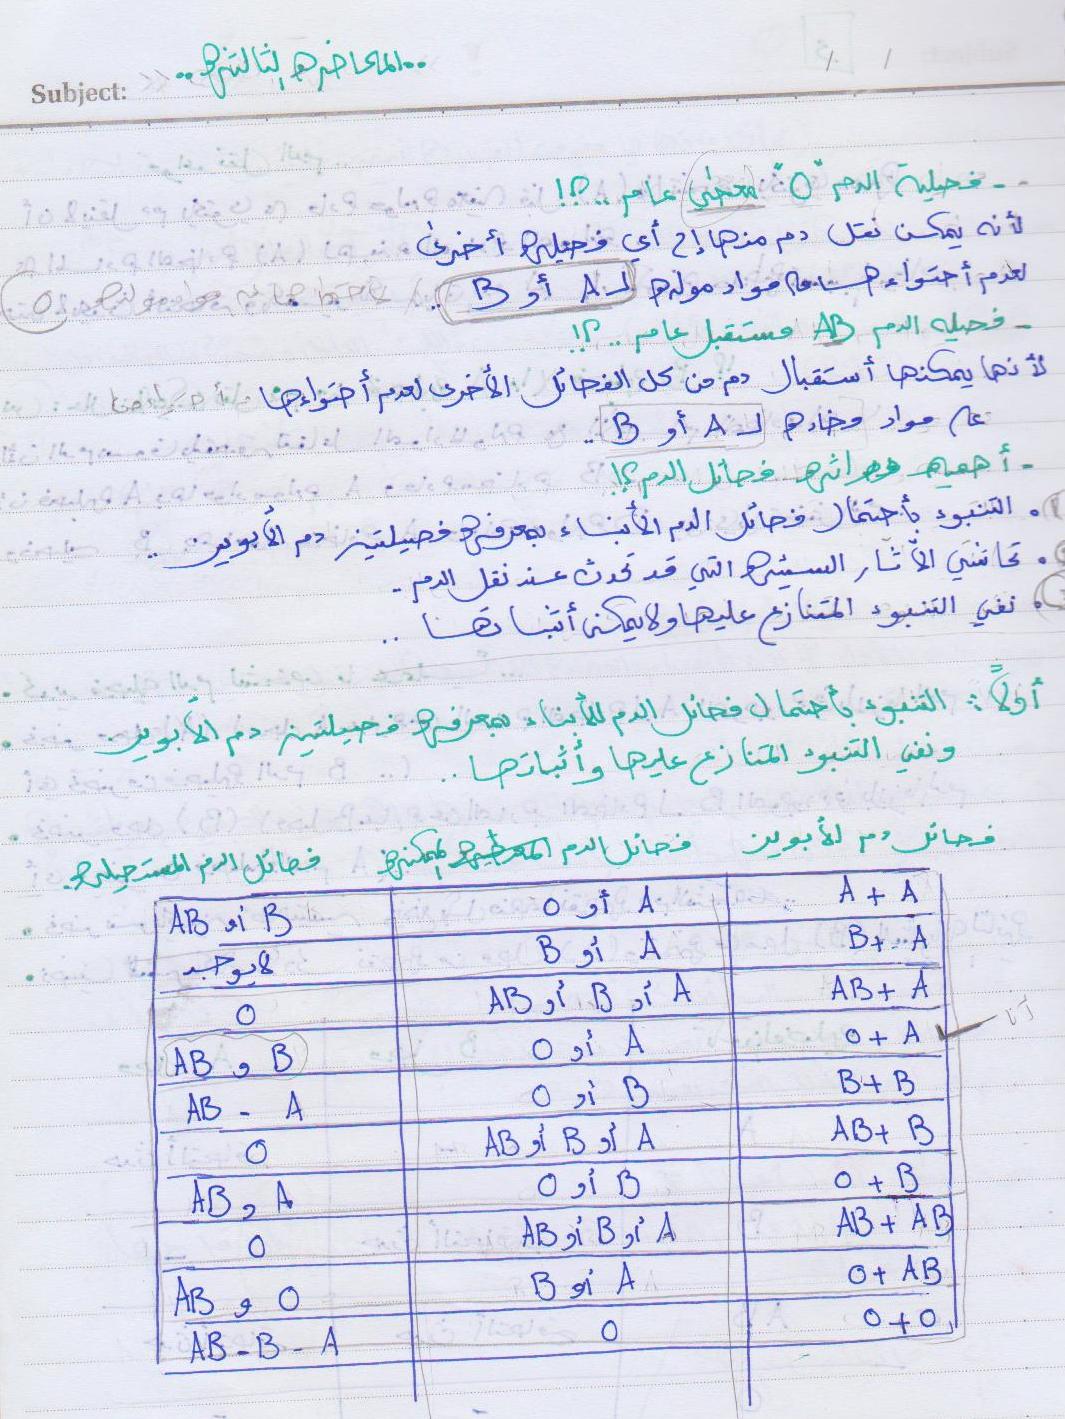 ..المحاضرة الثالثة..
Subject:
- فصيلة الدم "O" معطي عام ..؟!
لأنه يمكن نقل دم منها إلى أي فصيلة أخرى
لعدم أحتواءها على مواد مولدة لـ A أو B ..
- فصيلة الدم AB مستقبل عام ..؟!
لأنها يمكنها أستقبال دم من كل الفصائل الأخرى لعدم أحتواءها
على مواد مضادة لـ A أو B ..
- أهمية وراثة فصائل الدم؟!
• التنبوء بأحتمال فصائل الدم الأبناء بمعرفة فصيلتين دم الأبوين ..
• تحاشي الآثار السيئة التي قد تحدث عند نقل الدم ..
• نفي التنبوء المتنازع عليها ولا يمكن أثباتها ..
أولاً: التنبوء بأحتمال فصائل الدم للأبناء بمعرفة فصيلتين دم الأبوين
ونفي التنبوء المتنازع عليها وأثباتها ..
فصائل دم لأبوين فصائل الدم الممكنة فصائل الدم المستحيلة
A + A | A أو O | B أو AB
B + A | A أو B | لا يوجد
AB + A | A أو B أو AB | O
O + A | A أو O | B و AB
B + B | B أو O | A - AB
AB + B | A أو B أو AB | O
O + B | B أو O | A و AB
AB + AB | A أو B أو AB | O
O + AB | A أو B | O و AB
O + O | O | A - B - AB